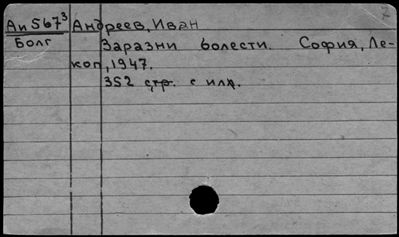 Аи567³ Андреев, Иван
Болг Заразни болести. София, Ле-
коп, 1947.
352 стр. с илл.